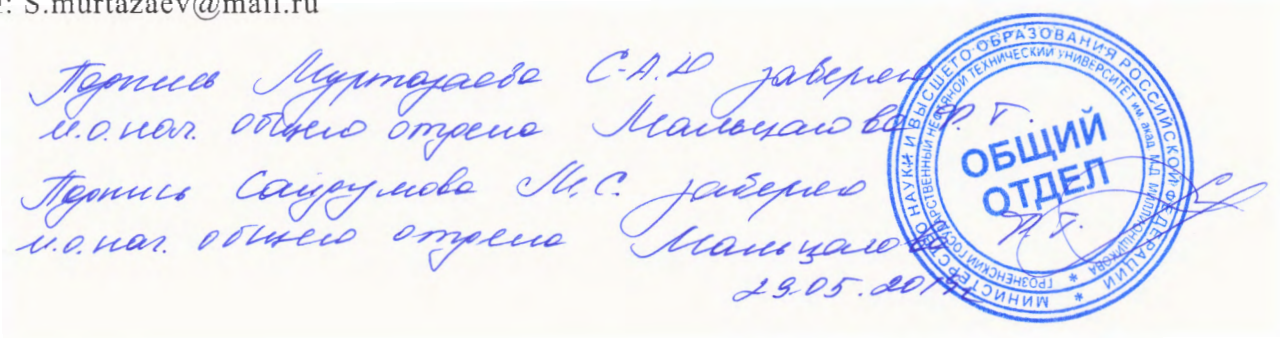 : S.murtazaev@mail.ru
Подпись Муртазаева С-А.Ю заверяю
и.о. нач. общего отдела Мальцагова Р. Г.
Подпись Сайдумова М.С. заверяю
и.о. нач. общего отдела Мальцагова
29.05.2019г
МИНИСТЕРСТВО НАУКИ И ВЫСШЕГО ОБРАЗОВАНИЯ РОССИЙСКОЙ ФЕДЕРАЦИИ
ГРОЗНЕНСКИЙ ГОСУДАРСТВЕННЫЙ НЕФТЯНОЙ ТЕХНИЧЕСКИЙ УНИВЕРСИТЕТ ИМ. АКАД. М.Д. МИЛЛИОНЩИКОВА
ОБЩИЙ
ОТДЕЛ